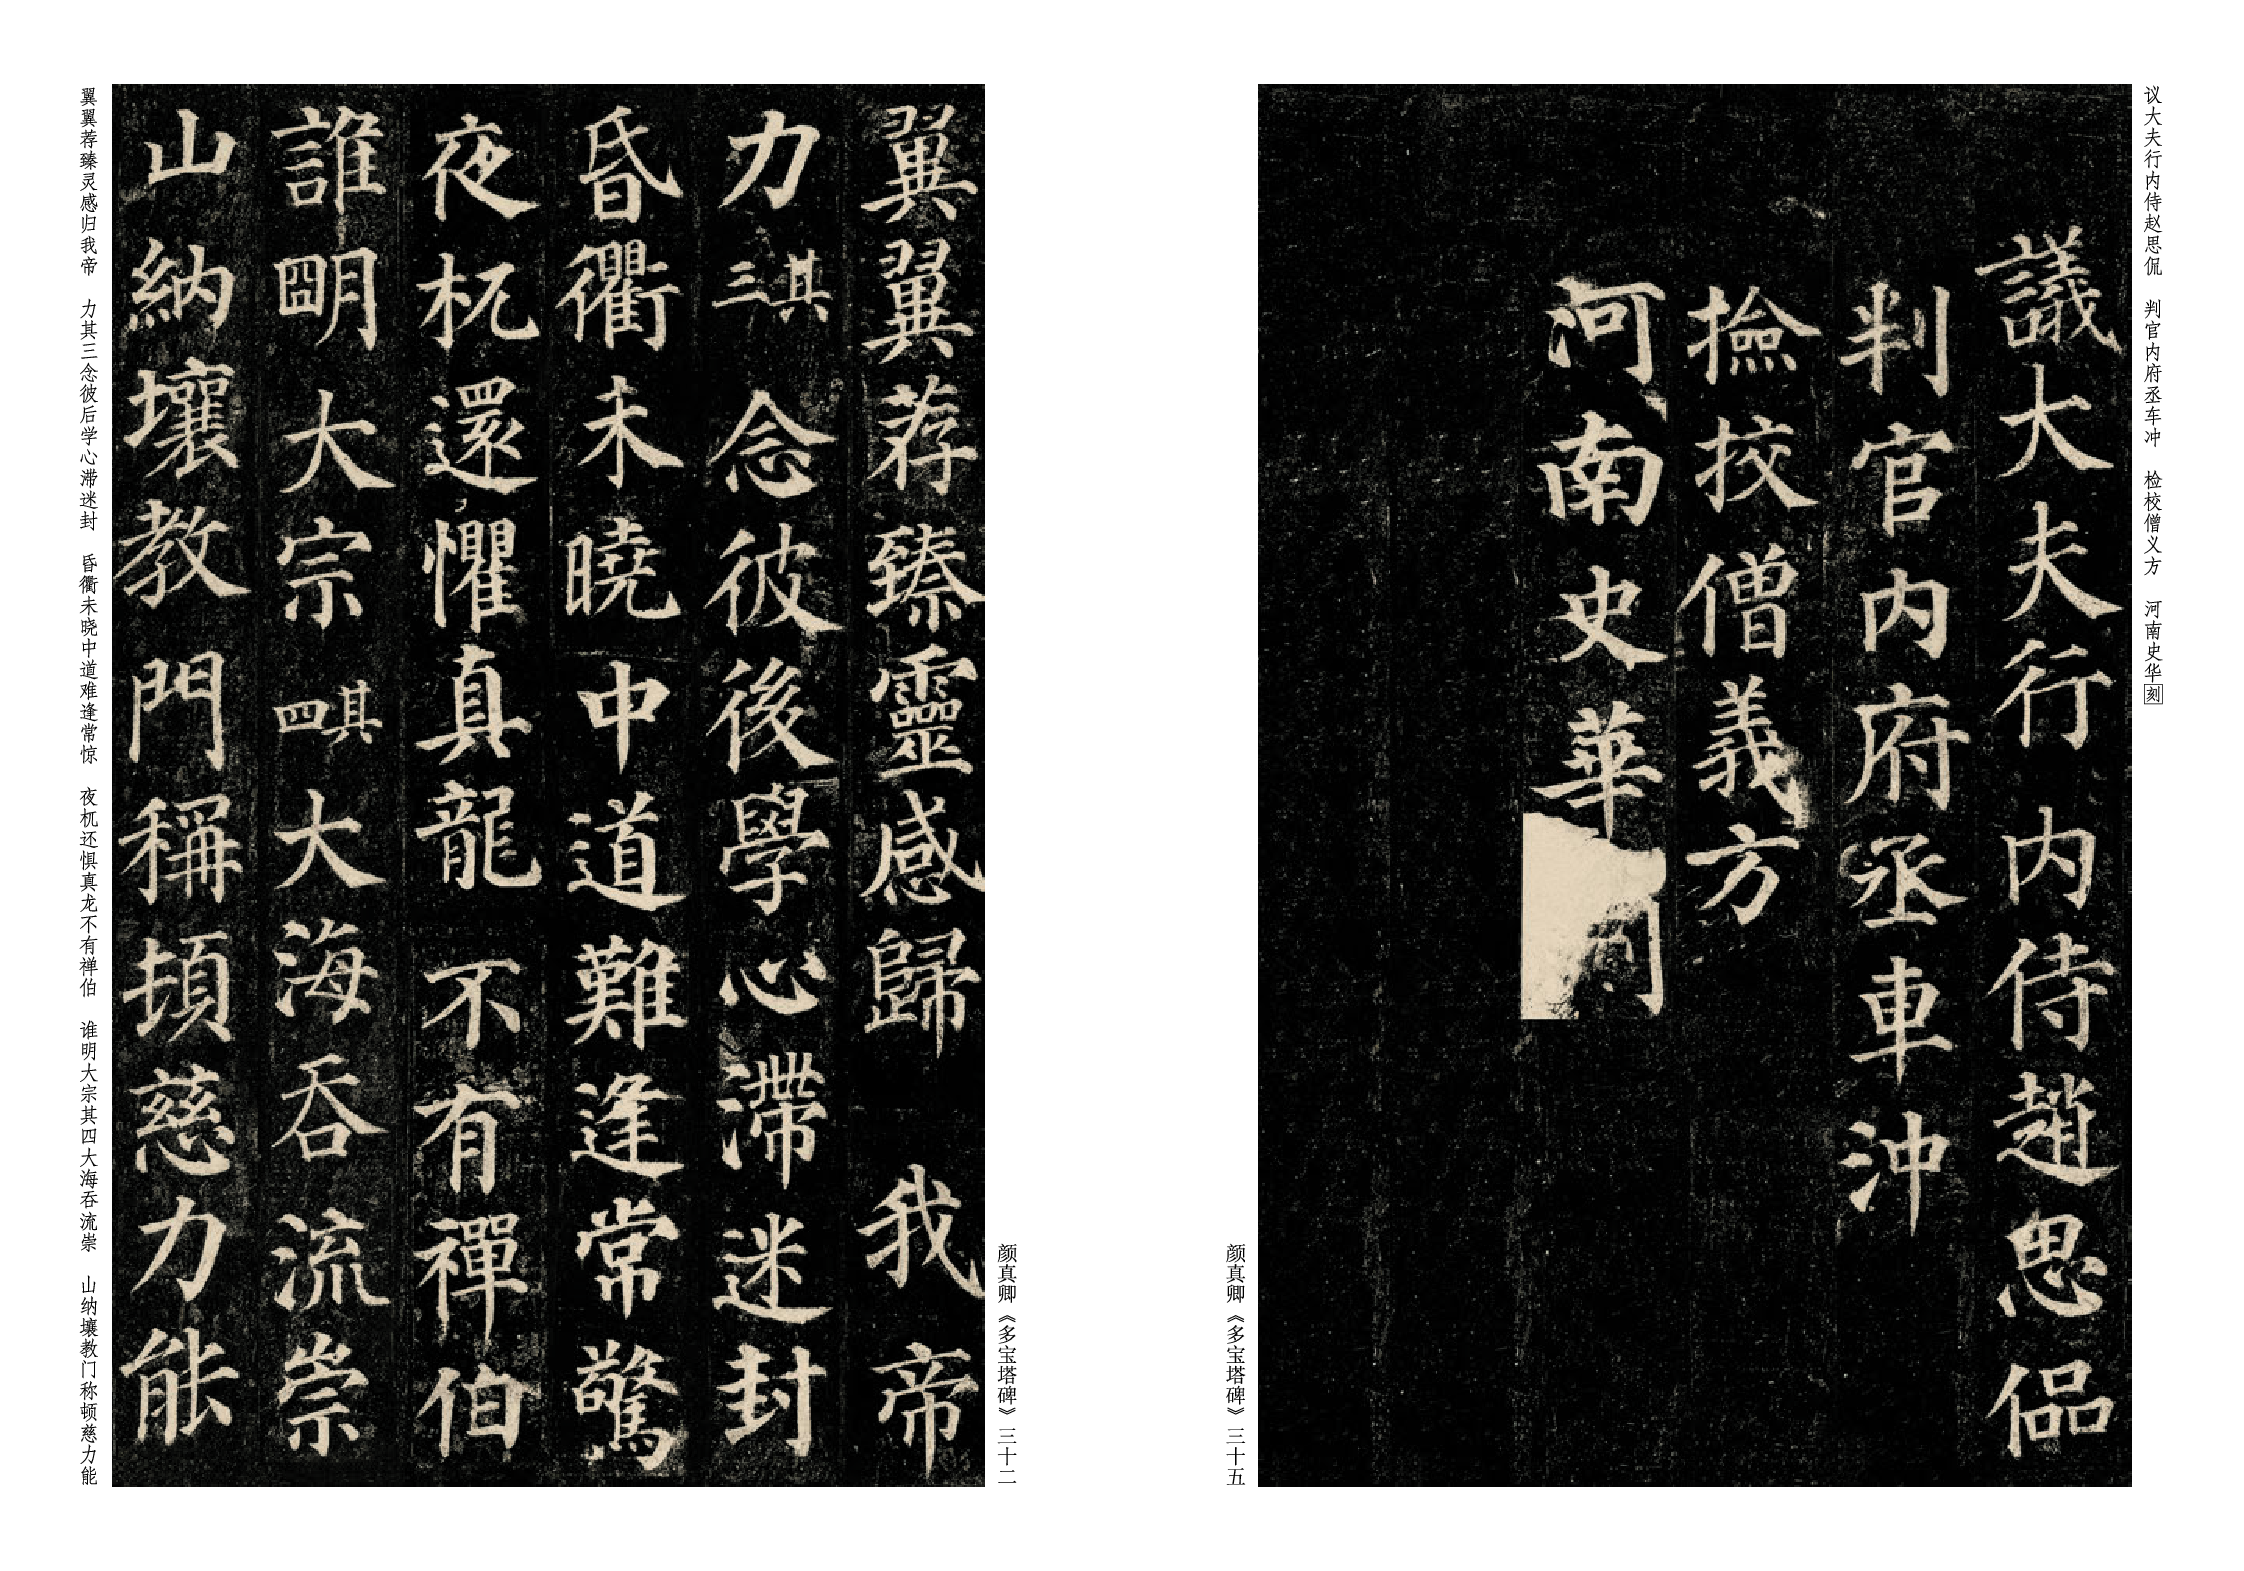 议大夫行内侍赵思侃　判官内府丞车冲　检校僧义方　河南史华刻
議大夫行内侍趙思偘
判官内府丞車沖
撿挍僧義方
河南史華
颜真卿《多宝塔碑》三十五
颜真卿《多宝塔碑》三十二
翼翼荐臻靈感歸　我帝
力其三念彼後學心滯迷封
昏衢未曉中道難逢常驚
夜杌還懼真龍不有禪伯
誰明大宗其四大海吞流崇
山納壤教門稱頓慈力能
翼翼荐臻灵感归我帝　力其三念彼后学心滞迷封　昏衢未晓中道难逢常惊　夜杌还惧真龙不有禅伯　谁明大宗其四大海吞流崇　山纳壤教门称顿慈力能